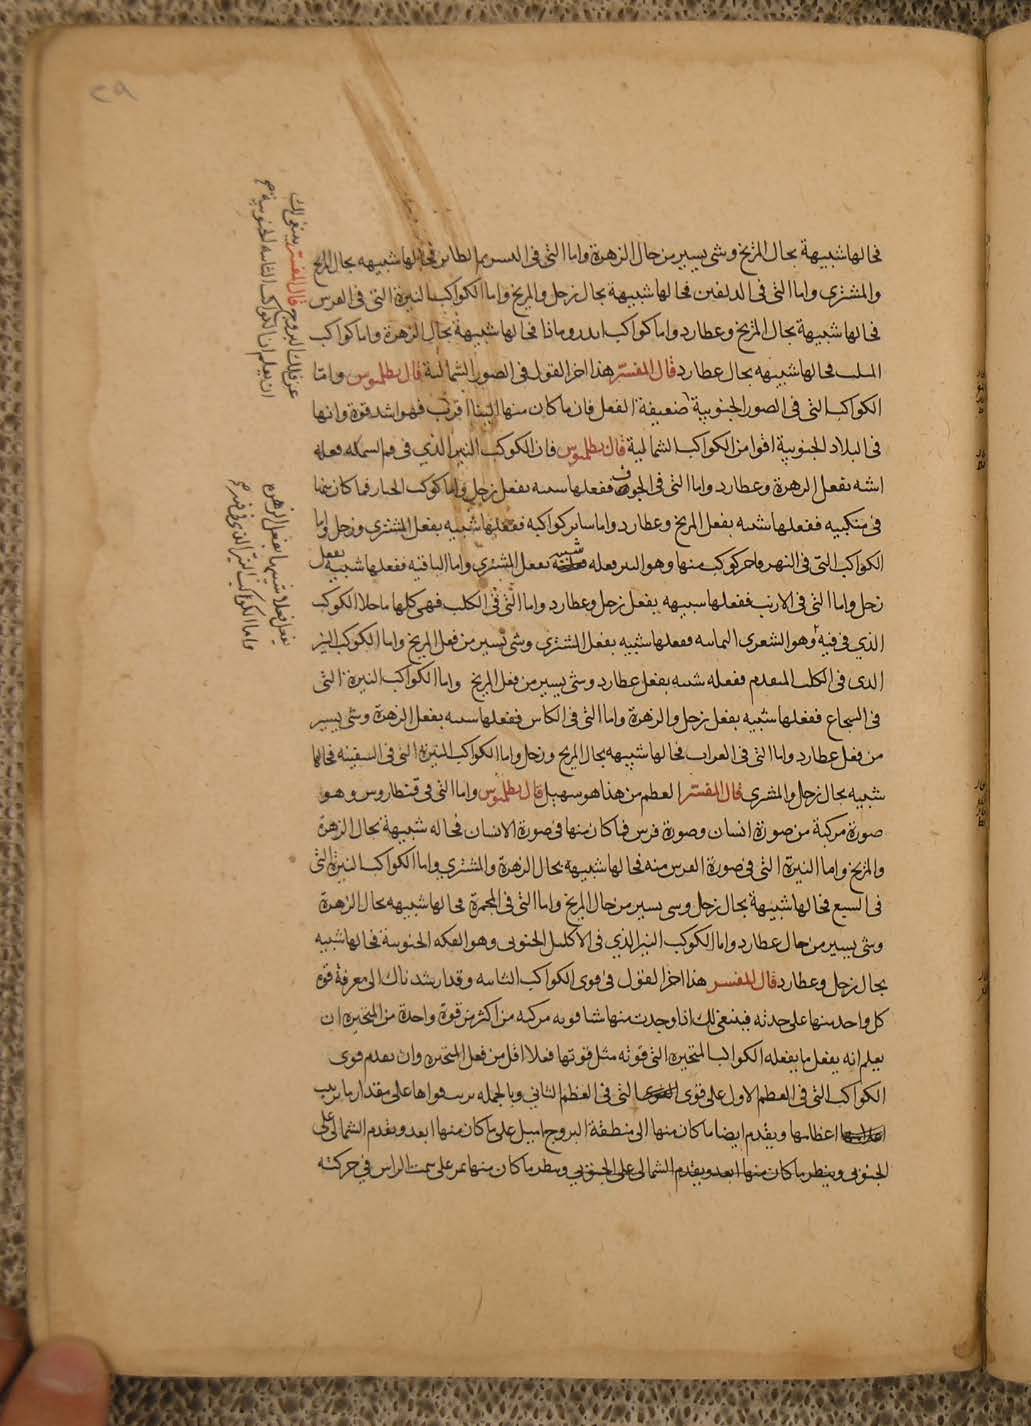 ٢٩
فحالها شبيهة بحال المريخ وشي يسير من حال الزهرة واما التي في النسر الطاير فحالها شبيهه بحال المريخ
والمشتري واما التي في الدلفين فحالها شبيهة بحال زحل والمريخ واما الكواكب النيرة التي في الفرس
فحالها شبيهة بحال المريخ وعطارد واما كواكب اندروماذا فحالها شبيهة بحال الزهرة واما كواكب
المثلث فحالها شبيهه بحال عطارد قال المفسر هذا اخر القول في الصور الشمالية قال بطلميوس واما
الكواكب التي في الصور الجنوبية ضعيفة الفعل فان ما كان منها الينا اقرب فهو اشد قوة وانها
في البلاد الجنوبية اقوا من الكواكب الشمالية قال بطلميوس فان الكوكب النير الذي في فم السمكه فعله
اشبه بفعل الزهرة وعطارد واما التي في الجوف ففعلها شبيه بفعل زحل واما كوكب الجبار فما كان منها
في منكبيه ففعلها شبيه بفعل المريخ وعطارد واما ساير كواكبه ففعلها شبيه بفعل المشتري وزحل واما
الكواكب التي في النهر فاخر كوكب منها وهو النير فعله شبيه بفعل المشتري واما الباقيه ففعلها شبيه بفعل
زحل واما التي في الارنب ففعلها شبيهه بفعل زحل وعطارد واما التي في الكلب فهي كلها ما خلا الكوكب
الذي في فيه وهو الشعرى اليمانيه ففعلها شبيه بفعل المشتري وشي يسير من فعل المريخ واما الكوكب النير
الذي في الكلب المتقدم ففعله شبيه بفعل عطارد وشي يسير من فعل المريخ واما الكواكب النيرة التي
في الشجاع ففعلها شبيه بفعل زحل والزهرة واما التي في الكاس ففعلها شبيه بفعل الزهرة وشي يسير
من فعل عطارد واما التي في الغراب فحالها شبيهه بحال المريخ وزحل واما الكواكب المنيرة التي في السفينه فحالها
شبيه بحال زحل والمشري قال المفسر العظم من هذا هو سهيل قال بطلميوس واما التي في قنطاروس وهو
صورة مركبة من صورة انسان وصورة فرس فما كان منها في صورة الانسان فحاله شبيهة بحال الزهرة
والمريخ واما النيرة التي في صورة الفرس منه فحالها شبيهه بحال الزهرة والمشتري واما الكواكب النيرة التي
في السبع فحالها شبيهة بحال زحل وشي يسير من حال المريخ واما التي في المجمرة فحالها شبيهه بحال الزهرة
وشي يسير من حال عطارد واما الكوكب النير الذي في الاكليل الجنوبي وهو الفكه الجنوبية فحالها شبيه
بحال زحل وعطارد قال المفسر هذا اخر القول في قوى الكواكب الثابته وقد ارشد ناك الى معرفة قوه
كل واحد منها على حدته فينبغي لك اذا وجدت منها شيا قوته مركبه من اكثر من قوة واحدة من المتحيره ان
يعلم انه يفعل ما يفعله الكواكب المتحيره التي قوته مثل قوتها فعلا اقل من فعل المتحيره وان تقدم قوى
الكواكب التي في العظم الاول على قوى التي في العظم الثاني وبالجمله ترتب قواها على مقدار ما ترتب
اعظامها ويقدم ايضا ما كان منها الى منطقة البروج اميل على ما كان منها ابعد ويقدم الشمالي على
الجنوبي وينظر ما كان منها ابعد ويقدم الشمالي على الجنوبي وينظر ما كان منها يمر على سمت الراس في حركته
عن فلك البروج قال المفسر ينبغي لك
ان تعلم ان الكواكب الثابته الجنوبية
يفعل فعلا شبيها بفعل الزهره
واما الكوكب النير الذي في فم